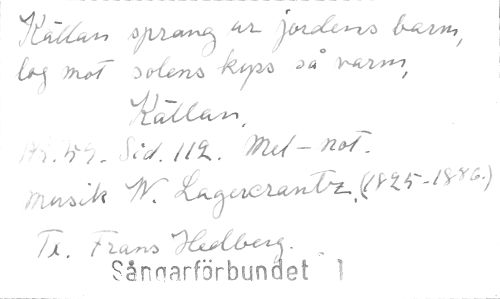 Källan sprang ur jordens barm,
log mot solens kyss så varm,
Källan.
Sid. 112. Mel-not.
Musik W. Lagercrantz. (1825-1886.)
Te. Frans Hedberg.
Sångarförbundet 1